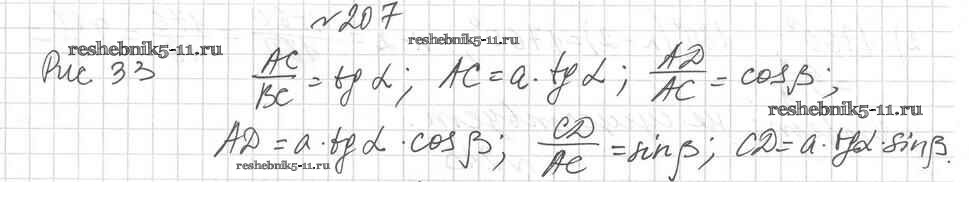 №207
reshebnik5-11.ru
reshebnik5-11.ru
Рис 33 AC/BC = tg α; AC = a · tg α; AD/AC = cos β;
reshebnik5-11.ru
AD = a · tg α · cos β; CD/AC = sin β; CD = a · tg α · sin β.
reshebnik5-11.ru